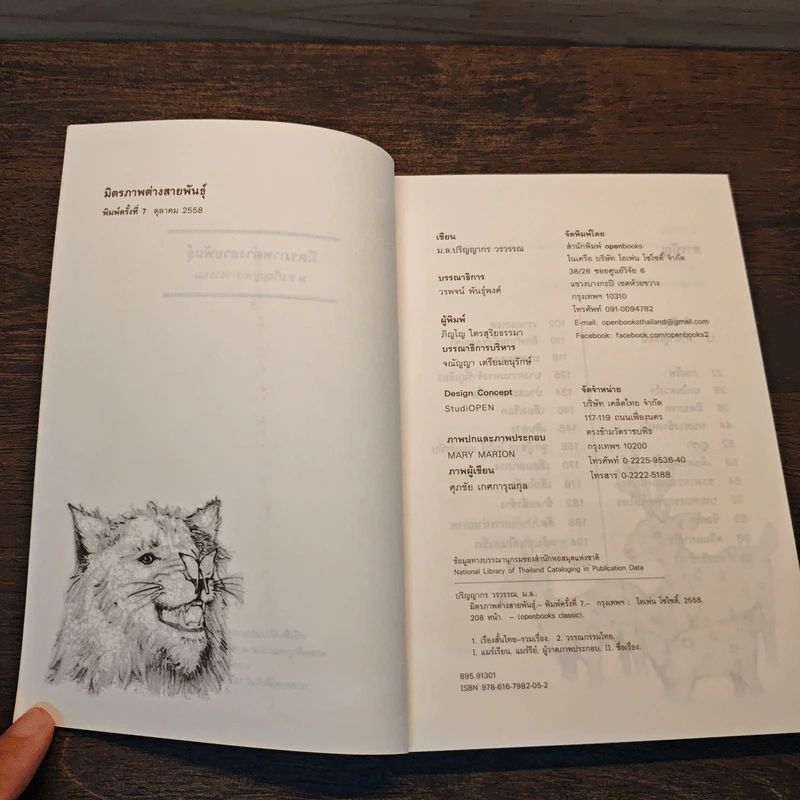 มิตรภาพต่างสายพันธุ์
พิมพ์ครั้งที่ 7 ตุลาคม 2558
เขียน
ม.ล.ปริญญากร วรวรรณ
บรรณาธิการ
วรพจน์ พันธุ์พงศ์
ผู้พิมพ์
ภิญโญ ไตรสุริยธรรมา
บรรณาธิการบริหาร
จณัญญา เตรียมอนุรักษ์
Design Concept
StudiOPEN
ภาพปกและภาพประกอบ
MARY MARION
ภาพผู้เขียน
ศุภชัย เกศการุณกุล
จัดพิมพ์โดย
สำนักพิมพ์ openbooks
ในเครือ บริษัท โอเพ่น โซไซตี้ จำกัด
38/26 ซอยศูนย์วิจัย 6
แขวงบางกะปิ เขตห้วยขวาง
กรุงเทพฯ 10310
โทรศัพท์ 091-0094782
E-mail: openbooksthailand@gmail.com
Facebook: facebook.com/openbooks2.
จัดจำหน่าย
บริษัท เคล็ดไทย จำกัด
117-119 ถนนเฟื่องนคร
ตรงข้ามวัดราชบพิธ
กรุงเทพฯ 10200
โทรศัพท์ 0-2225-9536-40
โทรสาร 0-2222-5188
ข้อมูลทางบรรณานุกรมของสำนักหอสมุดแห่งชาติ
National Library of Thailand Cataloging in Publication Data
ปริญญากร วรวรรณ, ม.ล..
มิตรภาพต่างสายพันธุ์.– พิมพ์ครั้งที่ 7.– กรุงเทพฯ : โอเพ่น โซไซตี้, 2558.
208 หน้า. – (openbooks classic).
1. เรื่องสั้นไทย–รวมเรื่อง. 2. วรรณกรรมไทย.
I. แมรี่เรียน, แมรี่รีย์, ผู้วาดภาพประกอบ, II. ชื่อเรื่อง.
895.91301
ISBN 978-616-7982-05-2